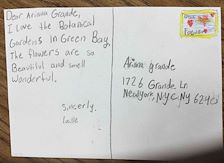 Dear Ariana Grande,
I love the Botanical
Gardens in Green Bay.
The flowers are so
Beautiful and smell
Wonderful.
Sincerly,
Ariana grande
1726 Grande Ln
Newyork, NYC, NY